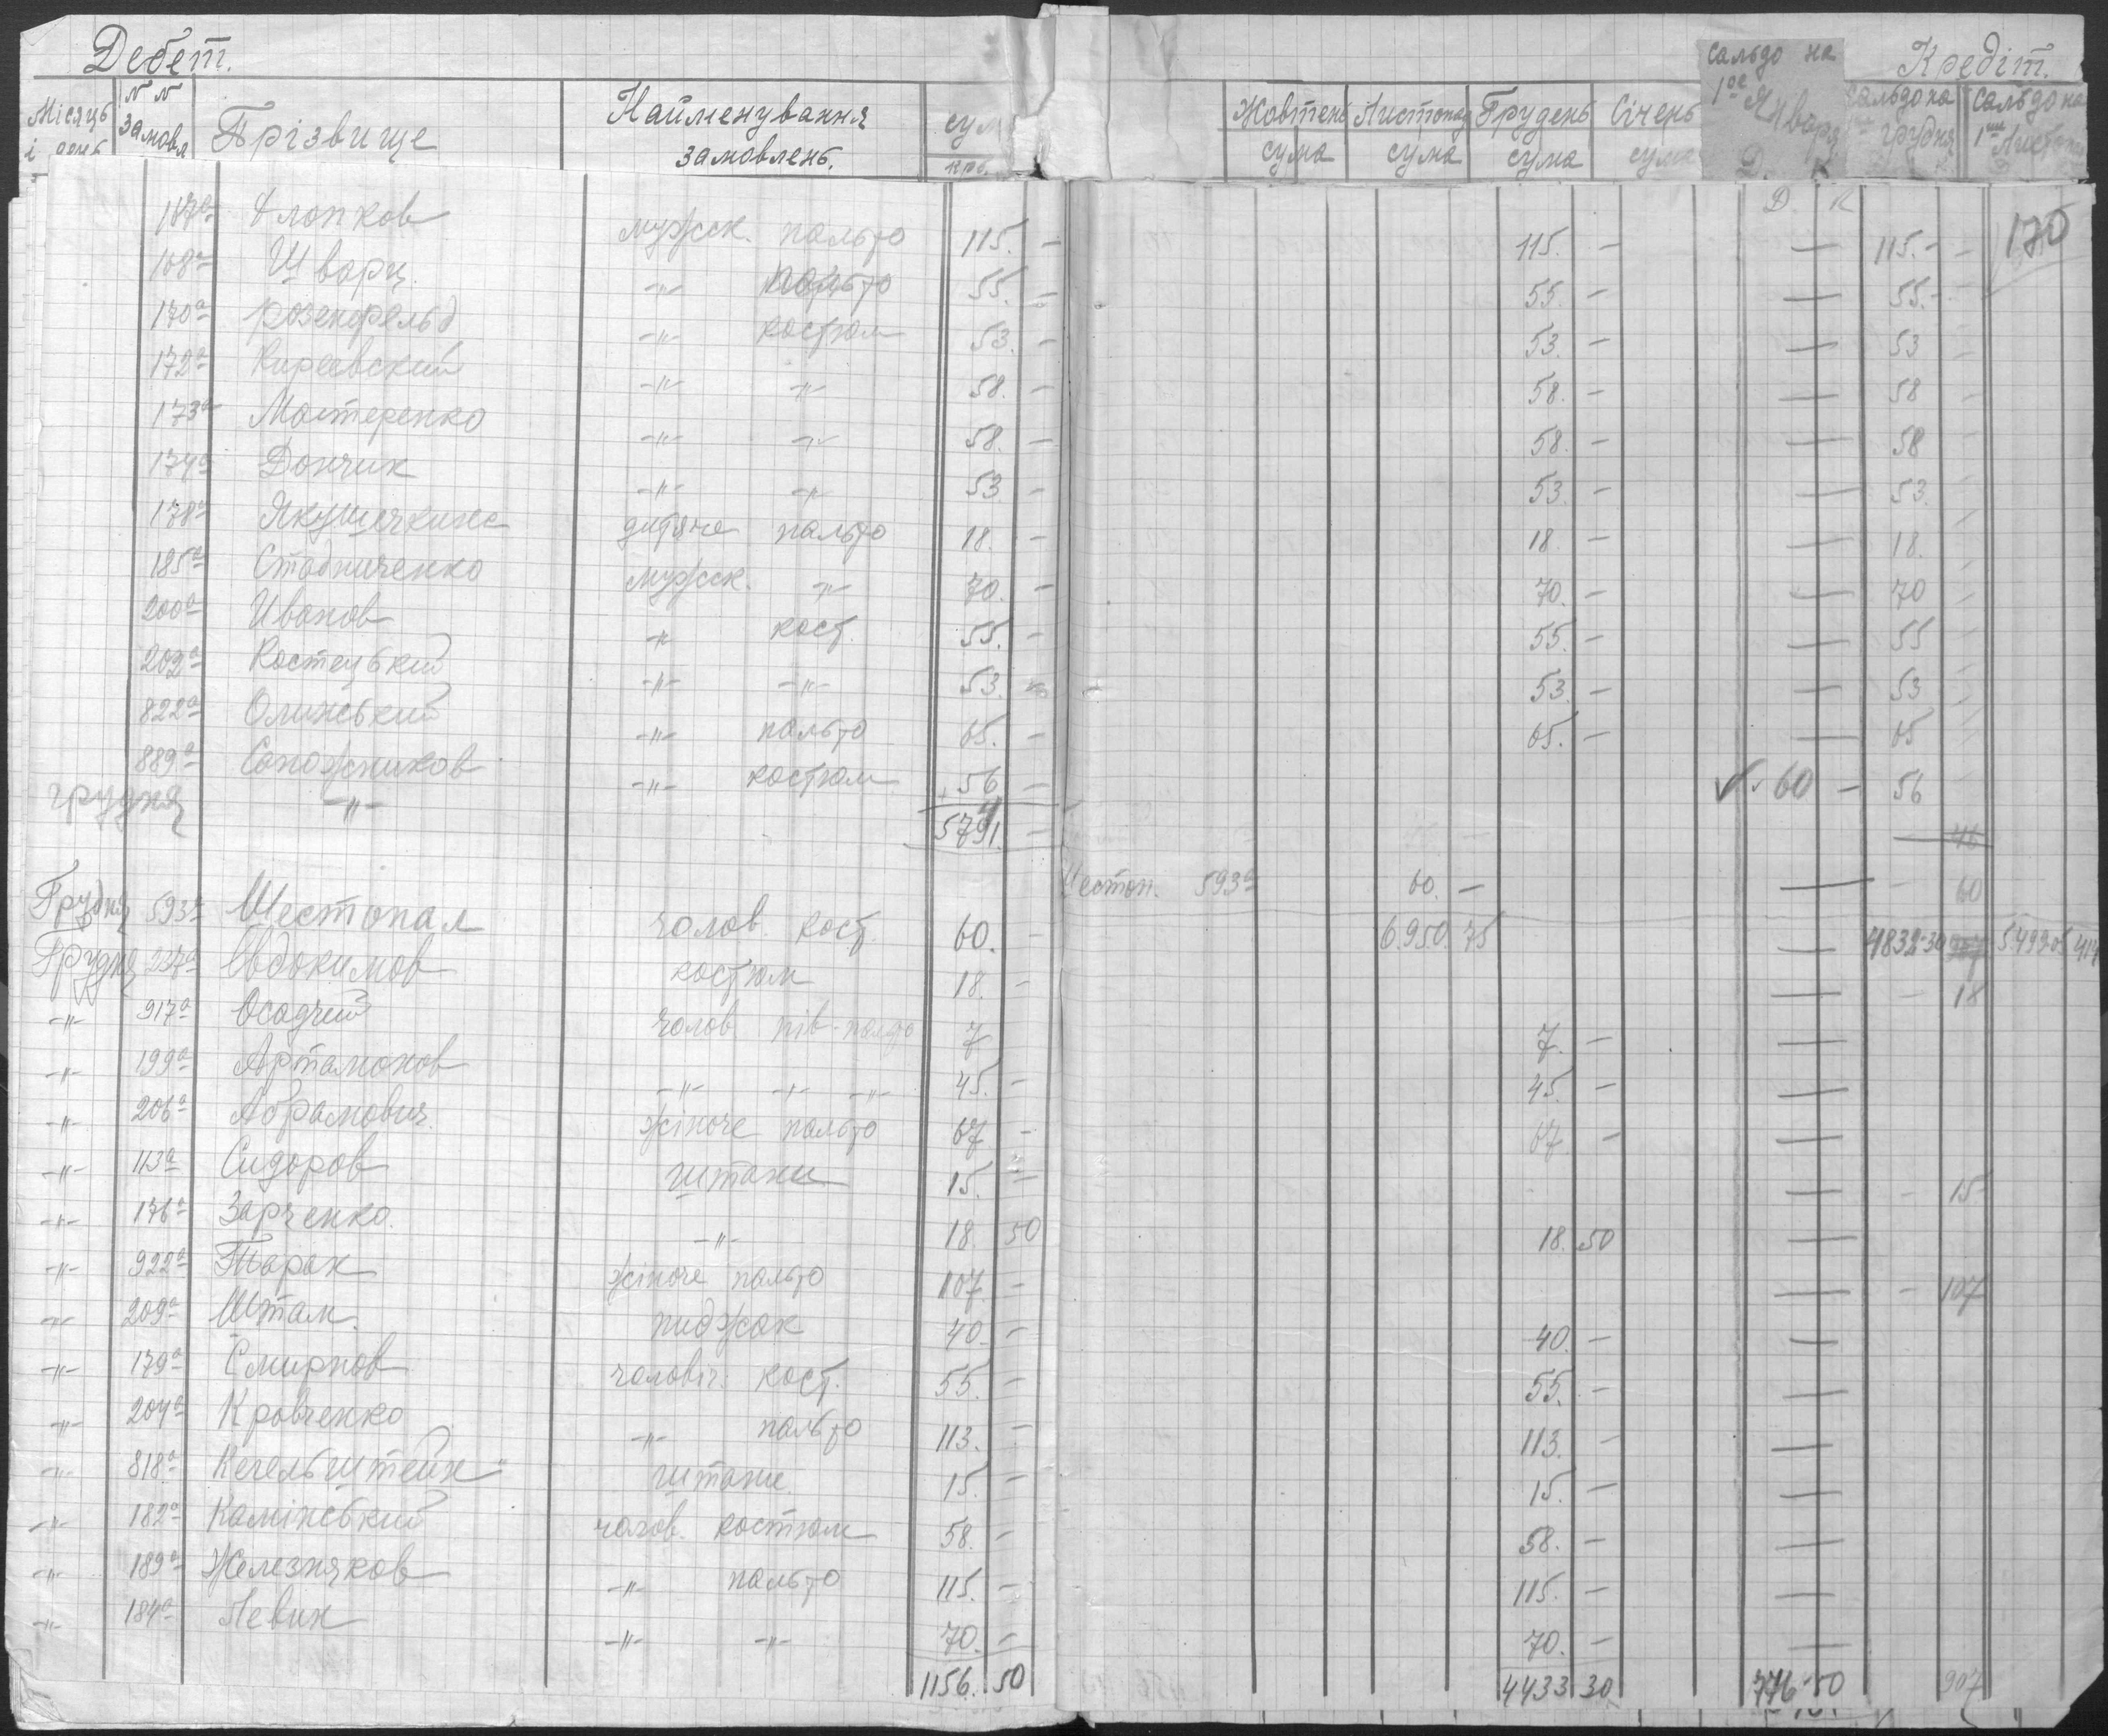 Дебет. Кредіт.
Місяць і день №№ замовл Прізвище Найменування замовлень. сум крб. Жовтень сума Листопад сума Грудень сума Січень сума Сальдо на 1ое Январь Д. К Сальдо на грудня Сальдо на 1ше Листоп
Д. К 170
187а Хлопков мужск. пальто 115. — 115. — — 115. —
168а Шварц. —"— пальто 55. — 55. — — 55. —
170а Розенфельд —"— костюм 53. — 53. — — 53 —
172а Киреевский —"— —"— 58. — 58. — — 58 —
173а Мастеренко —"— —"— 58. — 58. — — 58 —
174а Дончик —"— —"— 53 — 53. — — 53.
178а дитяче пальто 18. — 18. — — 18.
185а Стадниченко мужск. —"— 70. — 70. — — 70
200а Иванов —"— кост. 55. — 55. — — 55
202а Костецький —"— —"— 53. 53. — — 53
822а Олинський —"— пальто 65. — 65. — — 65
889а Сапожников —"— костюм 56 — ✓ 60 — 56
грудня —"— 5791. — 46
Шестоп. 593а 60. — — — 60
Грудня 593а Шестопал чолов. кост. 60. — 6.950. 75 — 4832-30
Грудня 227а Євдокимов костюм 18. — — — 18
—"— 917а Осадчий чолов. пів-пальто 7 7. — —
—"— 199а Артамонов —"— —"— —"— 45. — 45. — —
—"— 206а Абрамович. жіноче пальто 67 — 67. — —
—"— 113а Сидоров штани 15. — — — 15-
—"— 176а Зарченко. —"— 18. 50 18. 50 —
—"— 922а Тарак жіноче пальто 107. — — — 107
—"— 209а Штам. пиджак 40. — 40. — —
—"— 179а Смирнов чоловіч. кост. 55. — 55. — —
—"— 204а Кровченко —"— пальто 113. — 113. — —
—"— 818а Кегельштейн штани. 15. — 15. — —
—"— 182а Камінський чолов. костюм 58. — 58. — —
—"— 189а Железняков —"— пальто 115. — 115. — —
—"— 184а Левин —"— —"— 70. — 70. — —
1156. 50 4433 30 776-50 907